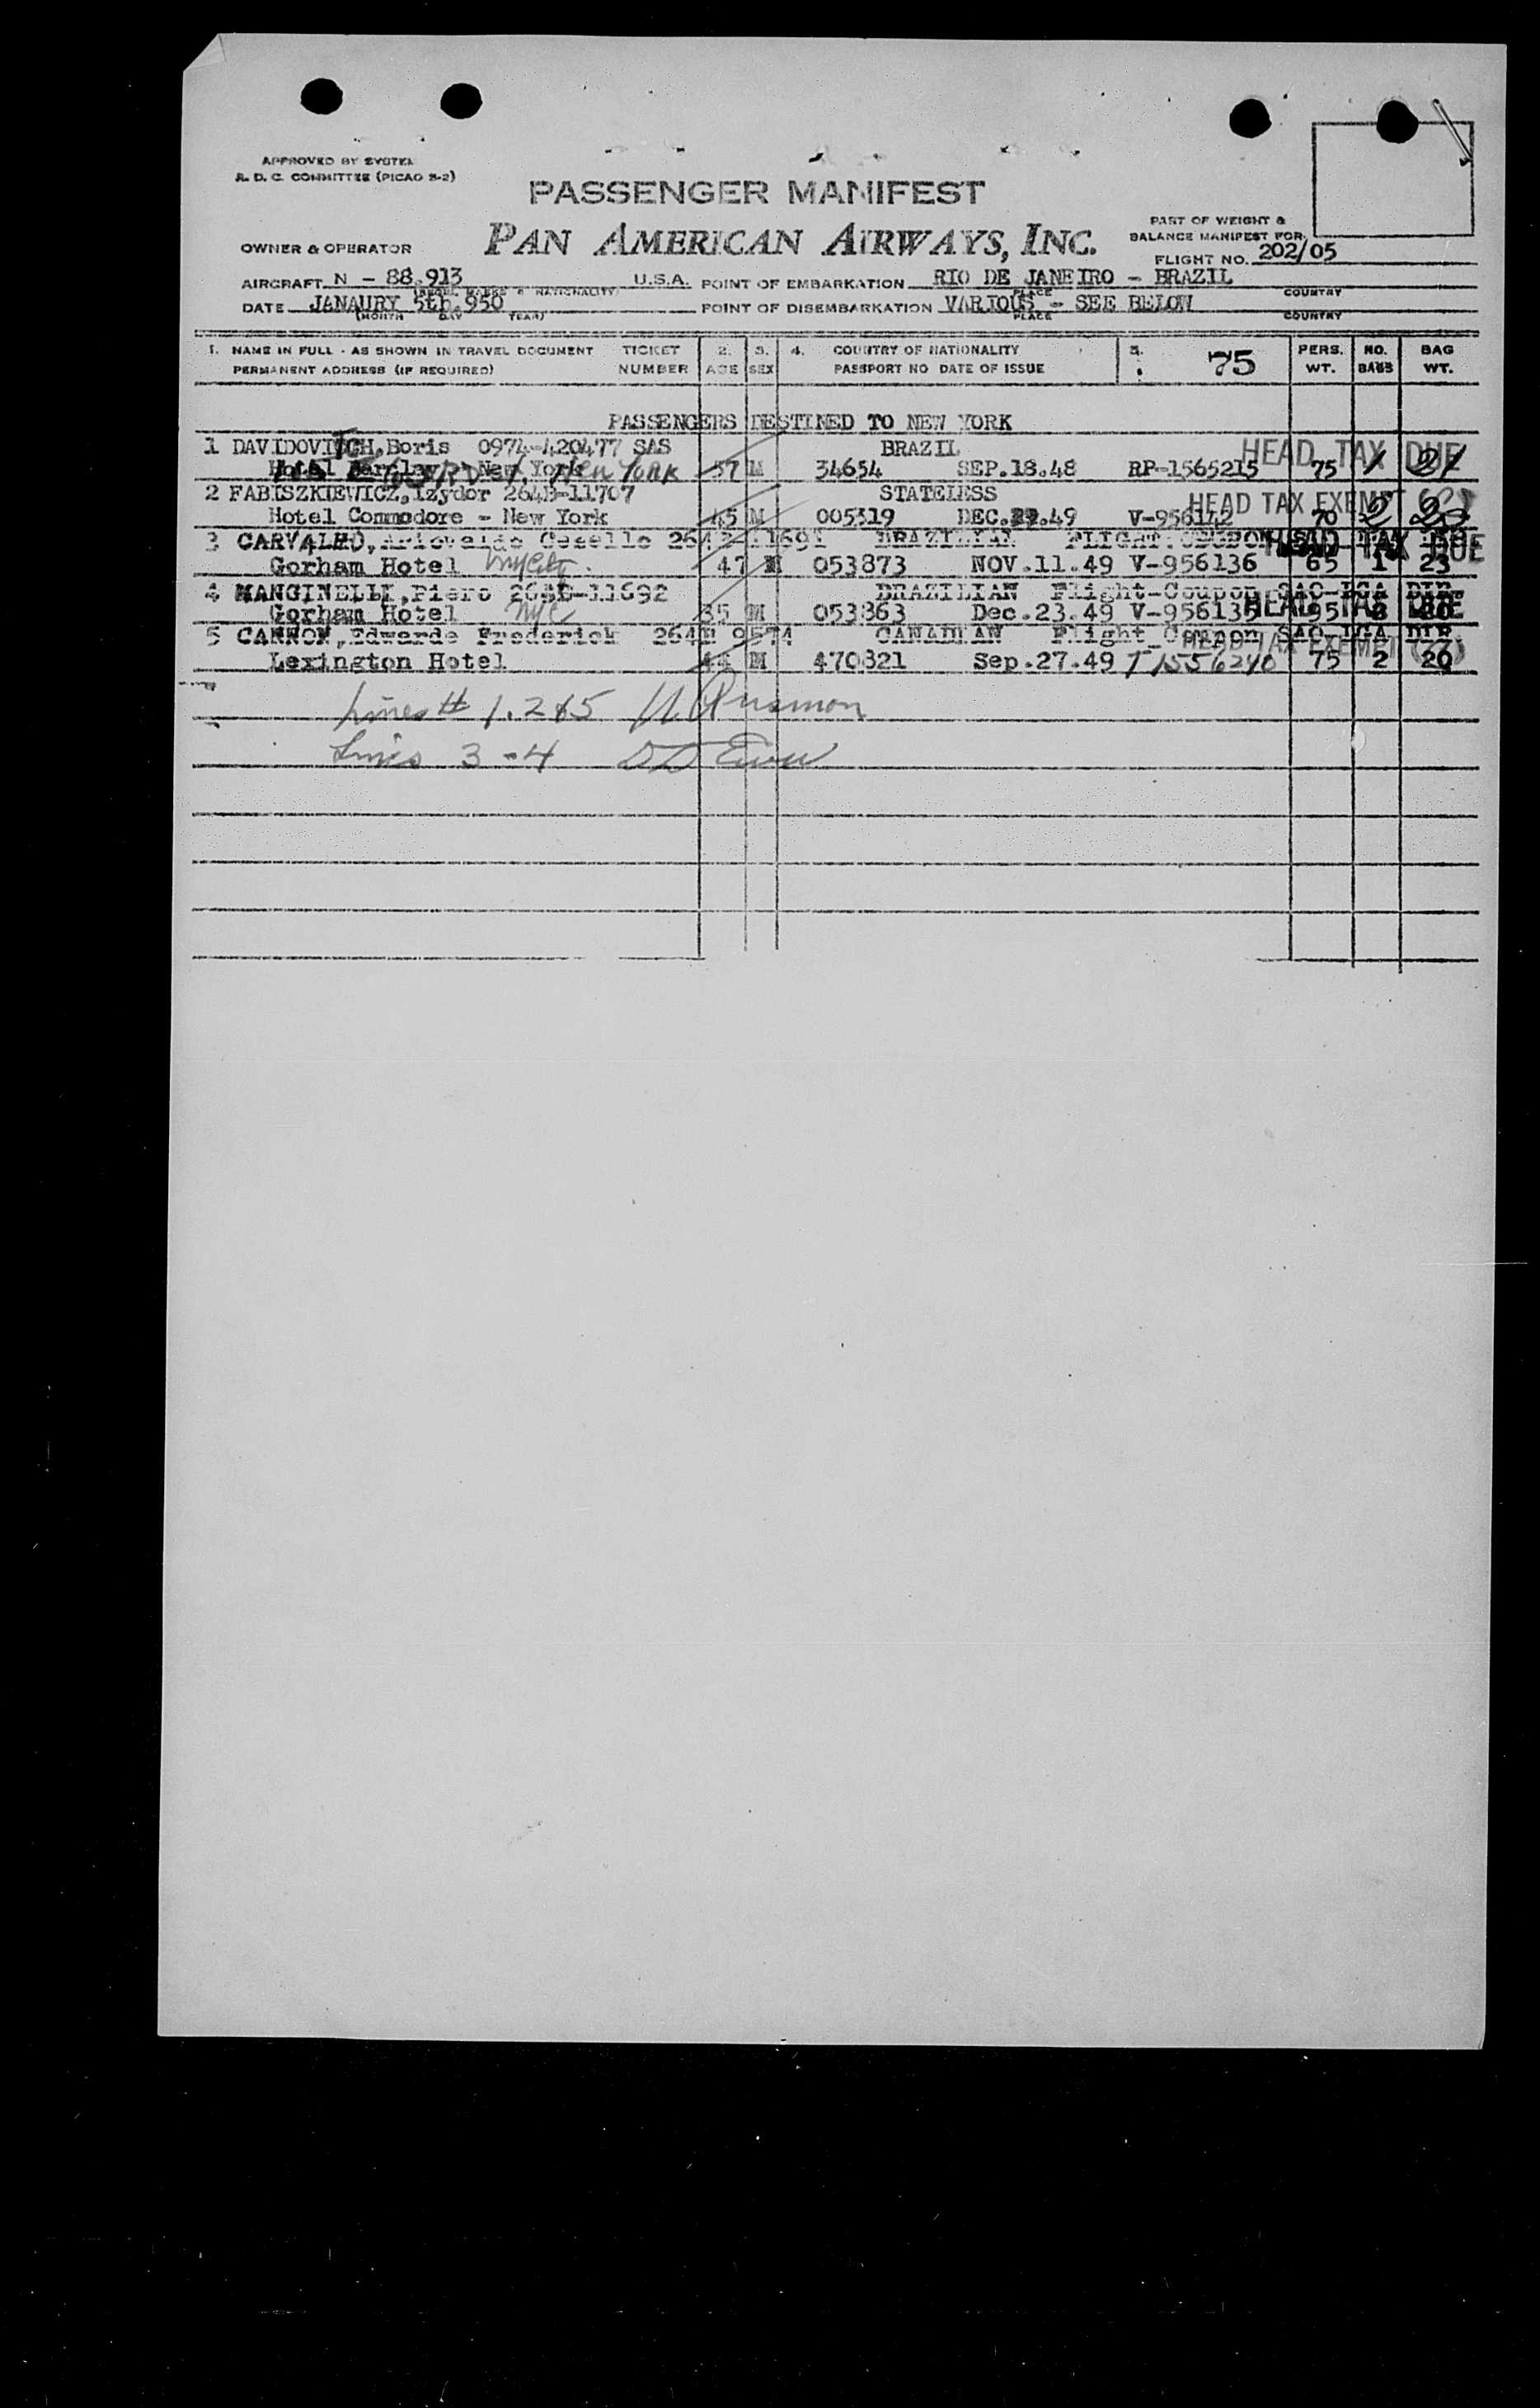 APPROVED BY SYSTEM
R. D. C. COMMITTEE (PICAO S-2)
PASSENGER MANIFEST
PAN AMERICAN AIRWAYS, INC.
OWNER & OPERATOR
PART OF WEIGHT &
BALANCE MANIFEST FOR
FLIGHT NO. 202/05
AIRCRAFT N - 88.913 U.S.A. POINT OF EMBARKATION RIO DE JANEIRO - BRAZIL
MARKS & NATIONALITY PLACE COUNTRY
DATE JANAURY 5th.950 POINT OF DISEMBARKATION VARIOUS - SEE BELOW
(MONTH DAY YEAR) PLACE COUNTRY
1. NAME IN FULL - AS SHOWN IN TRAVEL DOCUMENT TICKET 2. 3. 4. COUNTRY OF NATIONALITY 5. 75 PERS. NO. BAG
PERMANENT ADDRESS (IF REQUIRED) NUMBER AGE SEX PASSPORT NO DATE OF ISSUE WT. BAGS WT.
PASSENGERS DESTINED TO NEW YORK
1 DAVIDOVITCH, Boris 0974-420477 SAS BRAZIL HEAD TAX DUE
Hotel Barclay - New York New York 57 M 34654 SEP.18.48 RP-1565215 75 1 21
2 FABISZKIEWICZ, Izydor 264B-11707 STATELESS HEAD TAX EXEMPT
Hotel Commodore - New York 45 M 005319 DEC. .49 V-956142 70 2
3 CARVALHO, 11691 BRAZILIAN FLIGHT COUPON HEAD TAX DUE
Gorham Hotel NYCity 47 M 053873 NOV.11.49 V-956136 65 1 23
4 MANGINELLI, Piero 264B-11692 BRAZILIAN Flight-Coupon SAO-LGA DIR. HEAD TAX DUE
Gorham Hotel NYC 35 M 053863 Dec.23.49 V-956135 95
5 CANNON, Edwarde Frederick 264B 9574 CANADIAN Flight Coupon SAO-LGA DIR. HEAD TAX EXEMPT
Lexington Hotel 44 M 470821 Sep.27.49 T 1556240 75 2 20
Lines # 1.2&5
Lines 3-4